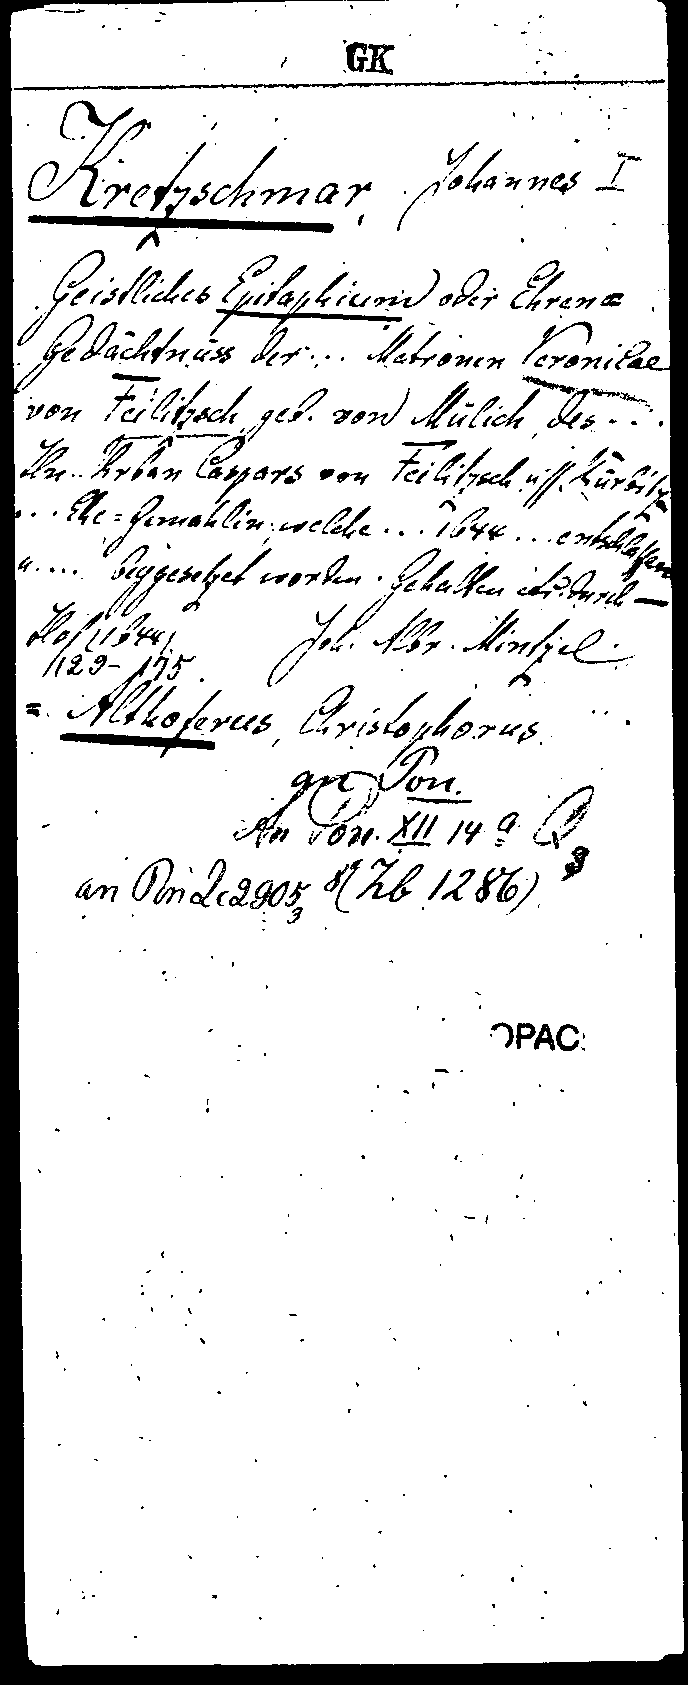 GK
Kretzschmar, Johannes I
Geistliches Epitaphium oder Ehren=
Gedächtnüss der... Matronen Veronicae
von Feilitzsch, geb. von Mülich, des...
Hn.. Urban Caspars von Feilitzsch uff Kürbitz
... Ehe=Gemahlin, welche... 1644... entschlaffen
u.... beygesetzet worden. Gehalten etc. durch —
Hof (1644) Joh. Albr. Mintzel.
129-175.
= Althoferus, Christophorus.
an Pon.
An Pon. XII 14 a Q
3
an Pon 2905 (Zb 1286)
3
OPAC